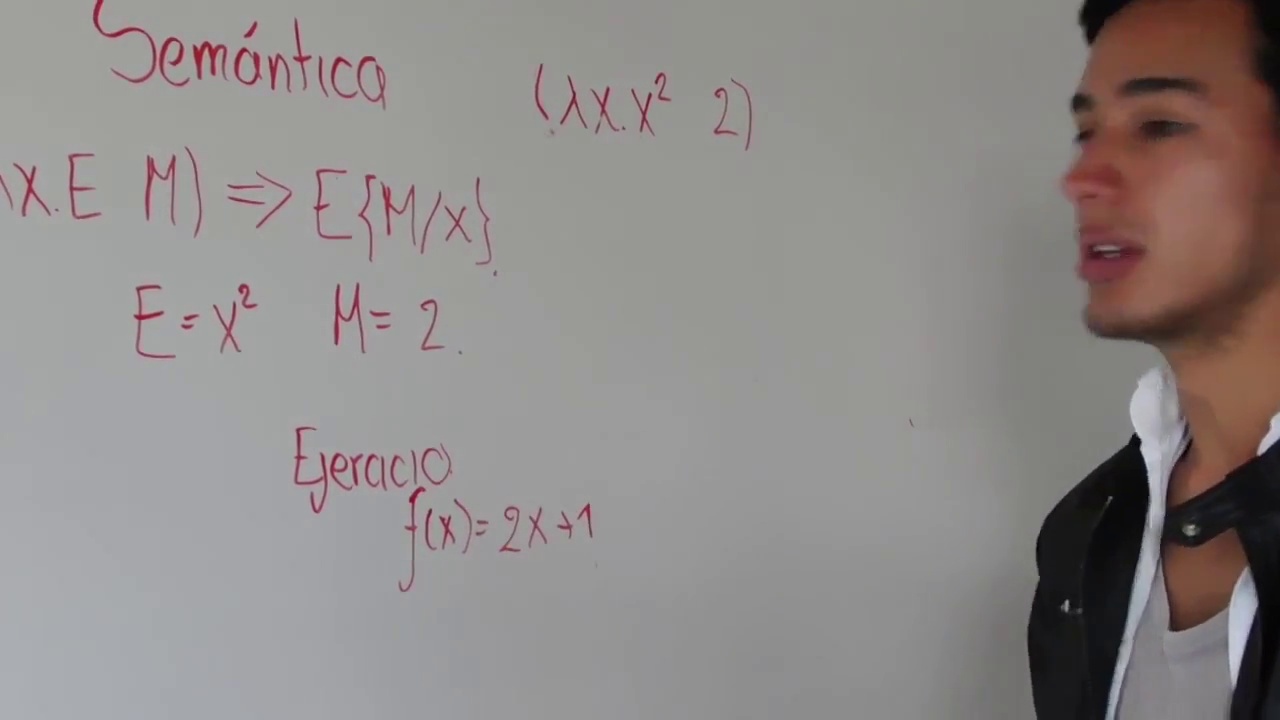 Semántica
(λx.x² 2)
λx.E M) => E{M/x}.
E = x² M = 2.
Ejercicio
f(x) = 2x+1